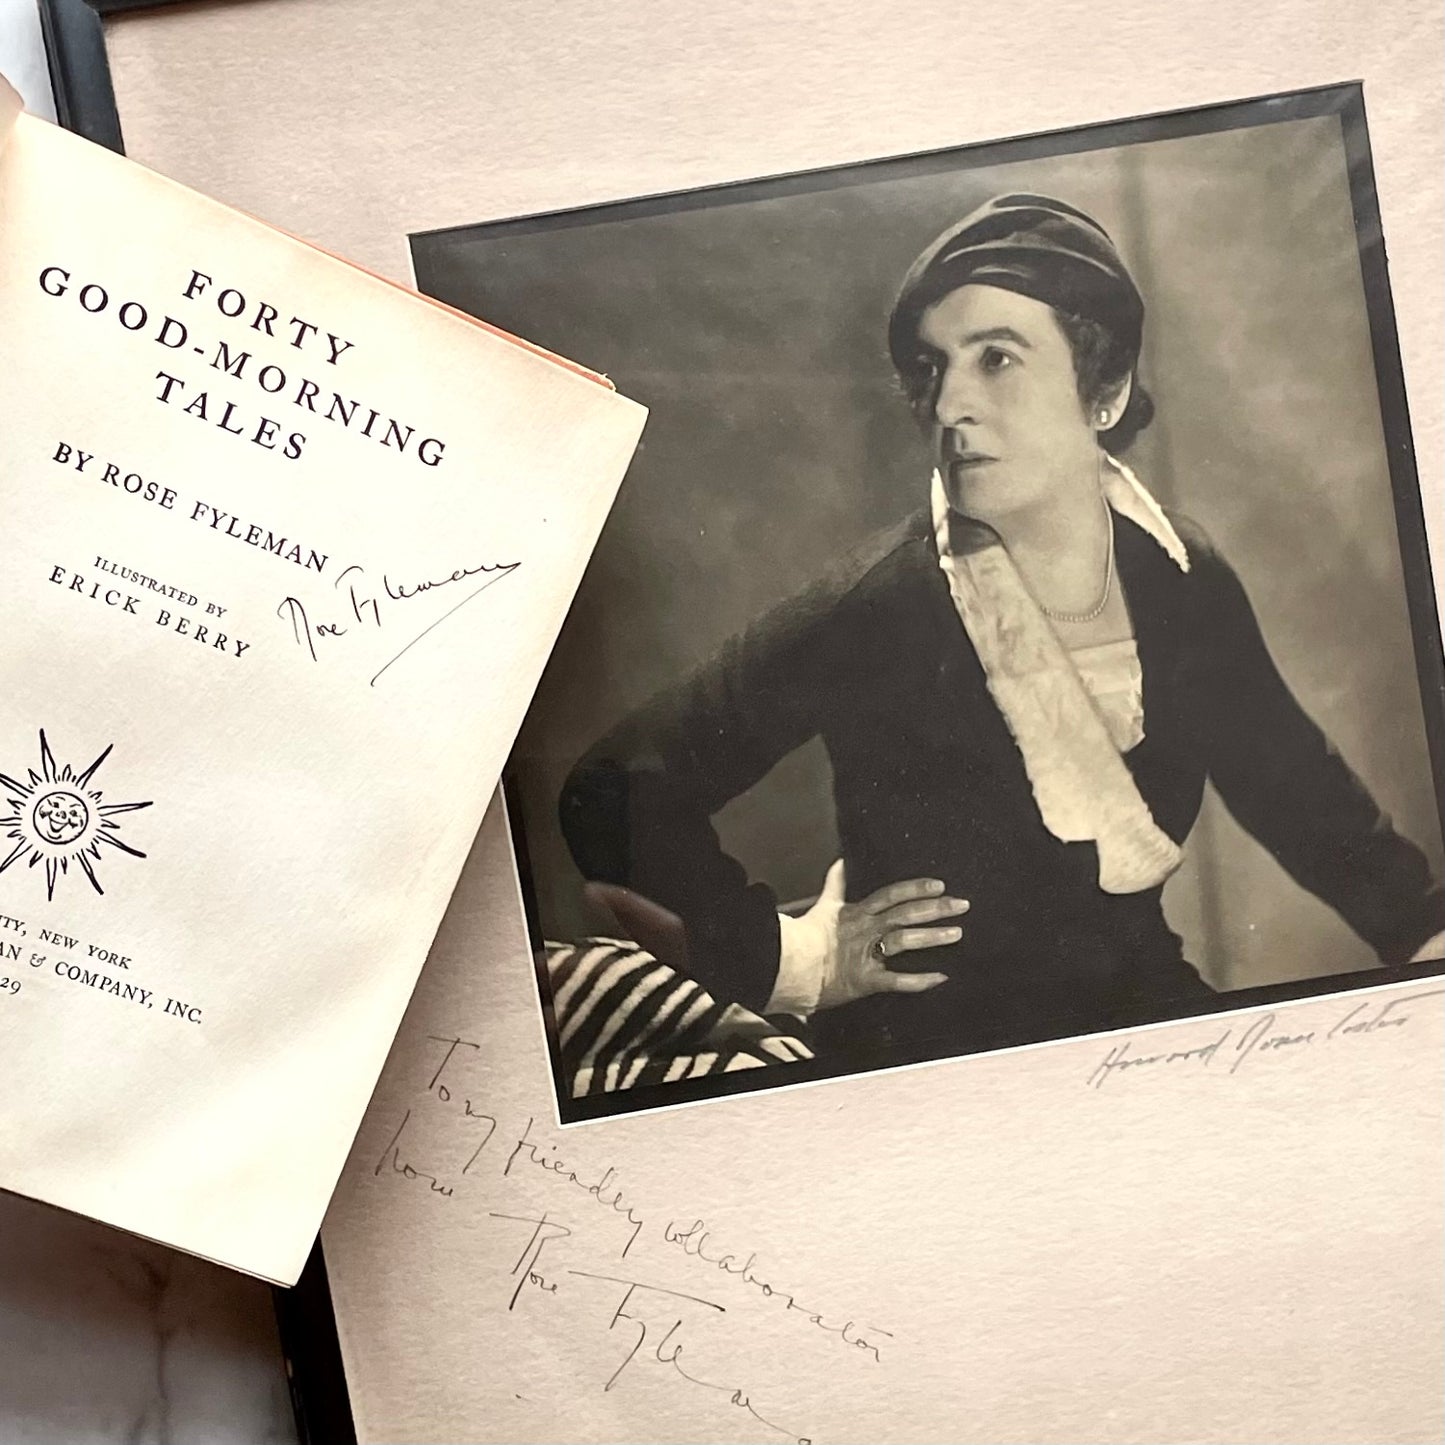 FORTY
GOOD-MORNING
TALES
BY ROSE FYLEMAN
ILLUSTRATED BY
ERICK BERRY
Rose Fyleman
NEW YORK
& COMPANY, INC.
29
Howard
To my friendly collaborator
from
Rose Fyleman